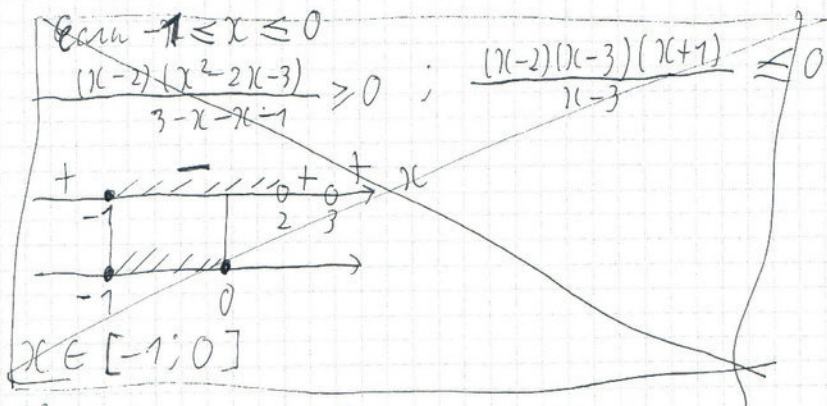 Если -1 ≤ x ≤ 0
(x-2)(x²-2x-3) / 3-x-x-1 ≥ 0 ; (x-2)(x-3)(x+1) / x-3 ≤ 0
+ - + + x
-1 2 3
-1 0
x ∈ [-1; 0]